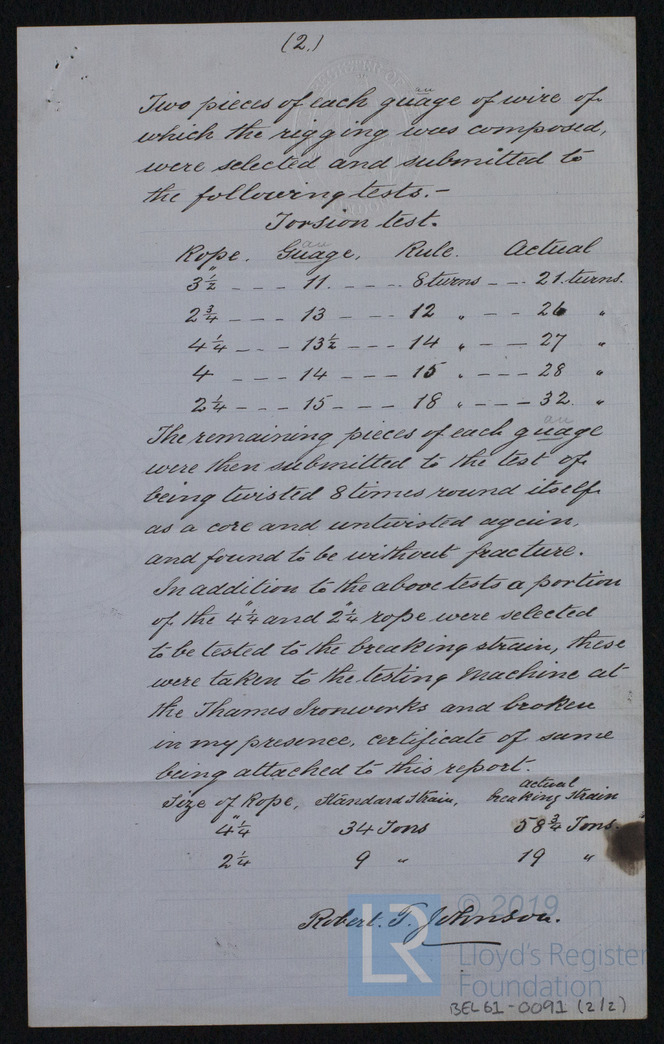 (2.)
Two pieces of each guage of wire of
which the rigging was composed,
were selected and submitted to
the following tests.-
Torsion test.
Rope. Guage, Rule. Actual
3½" - - - 11. - - - - 8 turns - - - 21. turns.
2¾ - - - - 13 - - - - 12 " - - - 26 "
4¼ - - - - 13½ - - - 14 " - - - 27 "
4 - - - - 14 - - - - 15 " - - - 28 "
2¼ - - - - 15 - - - - 18 " - - - 32. "
The remaining pieces of each guage
were then submitted to the test of
being twisted 8 times round itself
as a core and untwisted again,
and found to be without fracture.
In addition to the above tests a portion
of the 4¼" and 2¼" rope were selected
to be tested to the breaking strain, these
were taken to the testing machine at
the Thames Ironworks and broken
in my presence, certificate of same
being attached to this report.
Size of Rope, Standard Strain, actual breaking Strain
4¼" 34 Tons 58¾ Tons.
2¼ 9 " 19 "
Robert. T. Johnson.
© 2019
LR
Lloyd's Register
Foundation
BEL61-0091 (2/2)